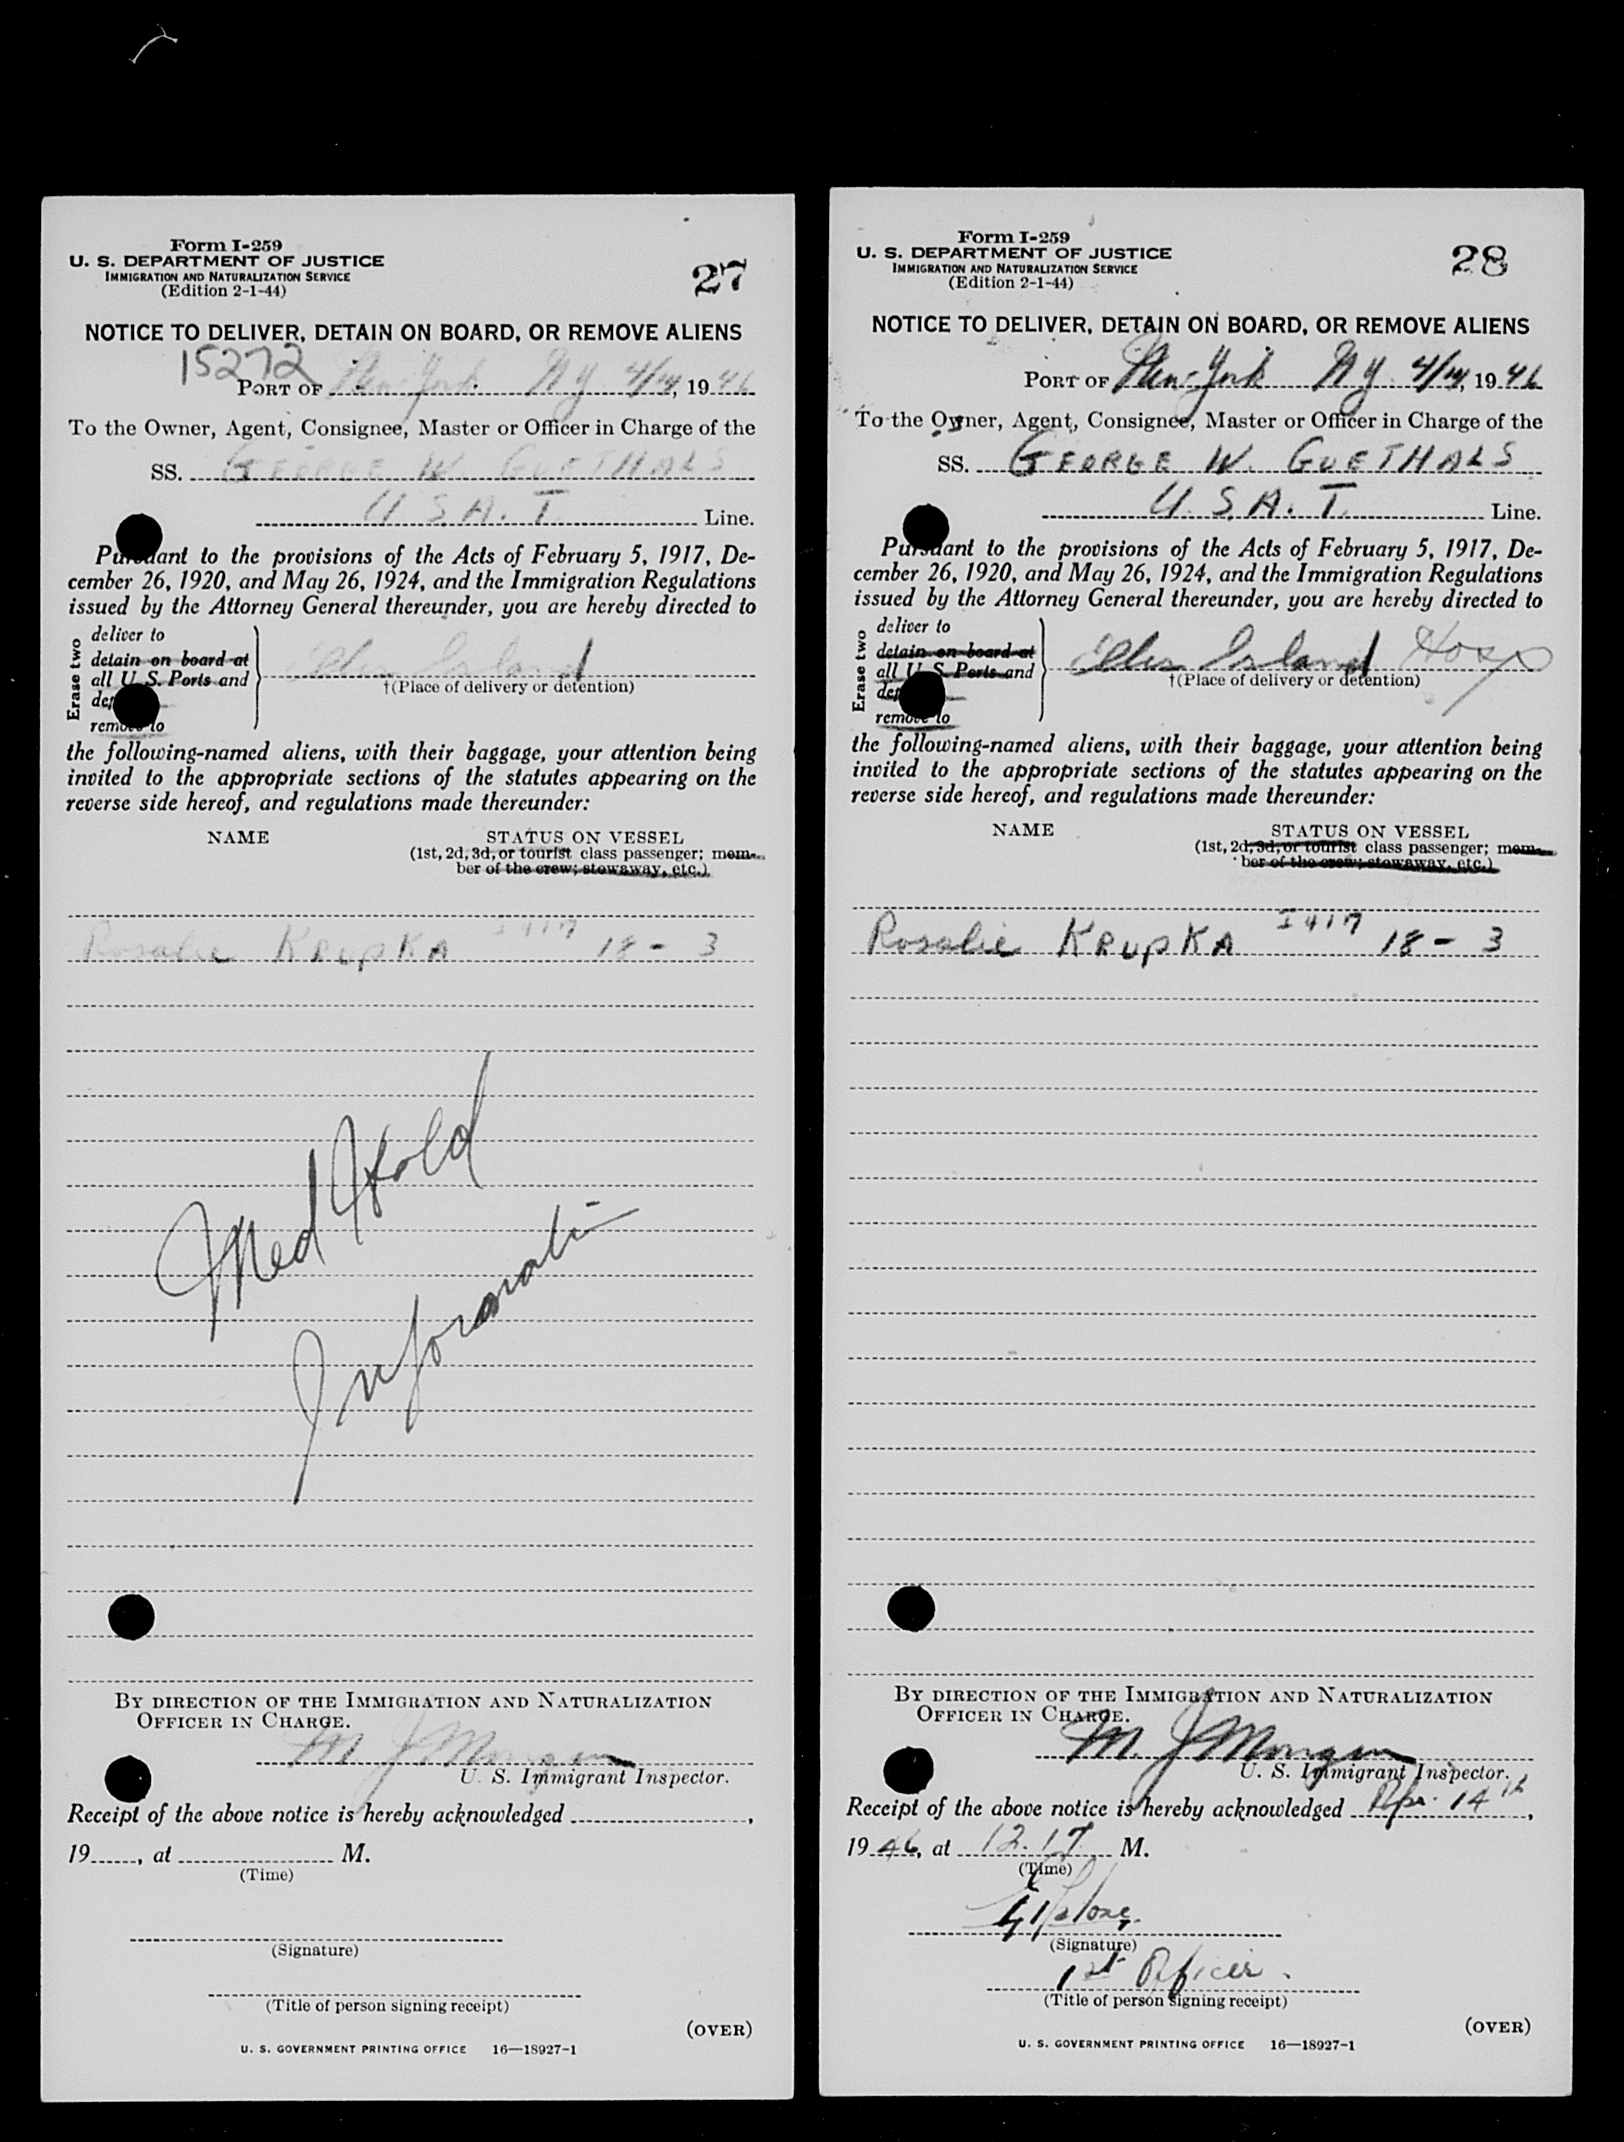 Form I-259
U. S. DEPARTMENT OF JUSTICE
IMMIGRATION AND NATURALIZATION SERVICE
(Edition 2-1-44)
27
NOTICE TO DELIVER, DETAIN ON BOARD, OR REMOVE ALIENS
15272
PORT OF New York NY 4/14, 1946
To the Owner, Agent, Consignee, Master or Officer in Charge of the
SS. GEORGE W. GOETHALS
U.S.A.T. Line.
Pursuant to the provisions of the Acts of February 5, 1917, De-
cember 26, 1920, and May 26, 1924, and the Immigration Regulations
issued by the Attorney General thereunder, you are hereby directed to
Erase two
deliver to
detain on board at
all U. S. Ports and
remove to
Ellis Island
†(Place of delivery or detention)
the following-named aliens, with their baggage, your attention being
invited to the appropriate sections of the statutes appearing on the
reverse side hereof, and regulations made thereunder:
NAME STATUS ON VESSEL
(1st, 2d, 3d, or tourist class passenger; mem-
ber of the crew; stowaway, etc.)
Rosalie KRUPKA I 417 18 - 3
Med Hold
Information
BY DIRECTION OF THE IMMIGRATION AND NATURALIZATION
OFFICER IN CHARGE.
M. J Morgan
U. S. Immigrant Inspector.
Receipt of the above notice is hereby acknowledged ,
19 , at M.
(Time)
(Signature)
(Title of person signing receipt)
(OVER)
U. S. GOVERNMENT PRINTING OFFICE 16—18927-1
Form I-259
U. S. DEPARTMENT OF JUSTICE
IMMIGRATION AND NATURALIZATION SERVICE
(Edition 2-1-44)
28
NOTICE TO DELIVER, DETAIN ON BOARD, OR REMOVE ALIENS
PORT OF New York NY 4/14, 1946
To the Owner, Agent, Consignee, Master or Officer in Charge of the
SS. GEORGE W. GOETHALS
U.S.A.T. Line.
Pursuant to the provisions of the Acts of February 5, 1917, De-
cember 26, 1920, and May 26, 1924, and the Immigration Regulations
issued by the Attorney General thereunder, you are hereby directed to
Erase two
deliver to
detain on board at
all U. S. Ports and
remove to
Ellis Island Hosp
†(Place of delivery or detention)
the following-named aliens, with their baggage, your attention being
invited to the appropriate sections of the statutes appearing on the
reverse side hereof, and regulations made thereunder:
NAME STATUS ON VESSEL
(1st, 2d, 3d, or tourist class passenger; mem-
ber of the crew; stowaway, etc.)
Rosalie KRUPKA I 417 18 - 3
BY DIRECTION OF THE IMMIGRATION AND NATURALIZATION
OFFICER IN CHARGE.
M. J Morgan
U. S. Immigrant Inspector.
Receipt of the above notice is hereby acknowledged Apr. 14th,
1946, at 12.17 M.
(Time)
(Signature)
1st Officer.
(Title of person signing receipt)
(OVER)
U. S. GOVERNMENT PRINTING OFFICE 16—18927-1